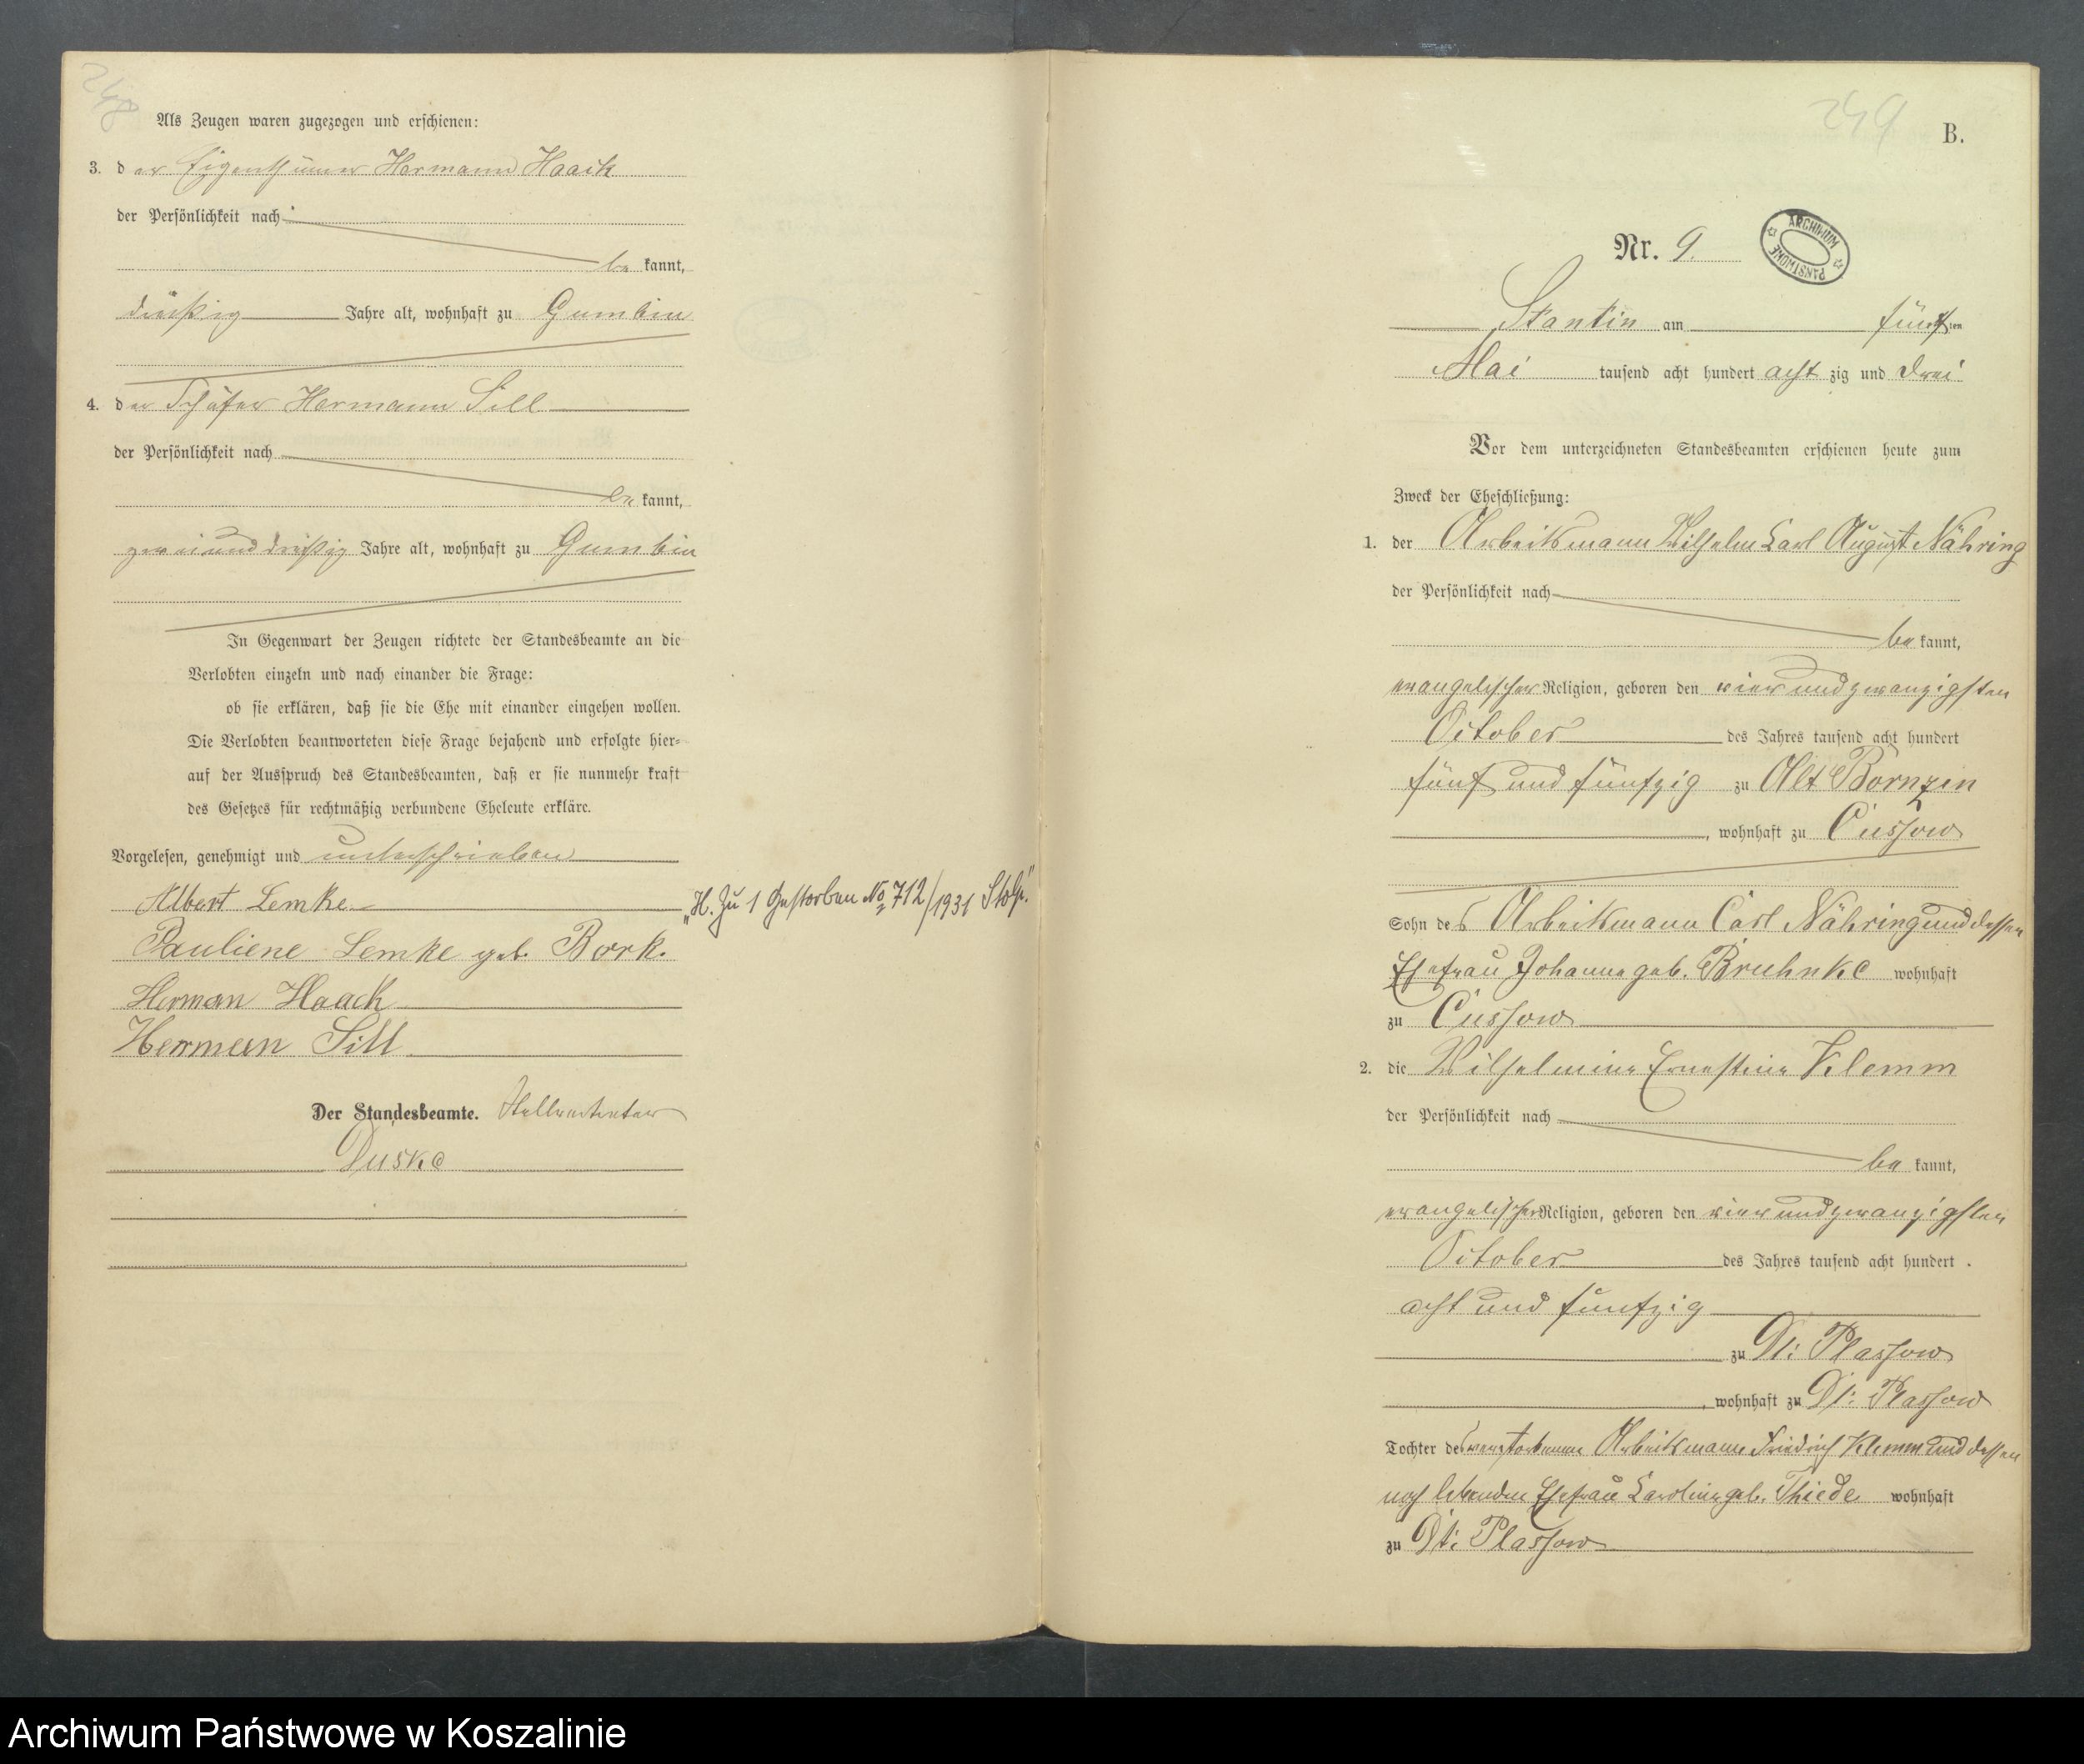 248
Als Zeugen waren zugezogen und erschienen:
3. der Eigenthümer Hermann Haack
der Persönlichkeit nach
be kannt,
dreißig Jahre alt, wohnhaft zu Gumbin
4. der Schäfer Hermann Sill
der Persönlichkeit nach
be kannt,
zweiunddreißig Jahre alt, wohnhaft zu Gumbin
In Gegenwart der Zeugen richtete der Standesbeamte an die
Verlobten einzeln und nach einander die Frage:
ob sie erklären, daß sie die Ehe mit einander eingehen wollen.
Die Verlobten beantworteten diese Frage bejahend und erfolgte hier-
auf der Ausspruch des Standesbeamten, daß er sie nunmehr kraft
des Gesetzes für rechtmäßig verbundene Eheleute erkläre.
Vorgelesen, genehmigt und unterschrieben
Albert Lemke
Pauliene Lemke geb. Bork.
Herman Haack
Herrman Sill
Der Standesbeamte. Stellvertreter
Duske
„H. Zu 1 Gestorben No 712/1931 Stolp."
249
B.
Nr. 9.
ARCHIWUM PAŃSTWOWE
Stantin am fünften
Mai tausend acht hundert acht zig und drei
Vor dem unterzeichneten Standesbeamten erschienen heute zum
Zweck der Eheschließung:
1. der Arbeitsmann Wilhelm Carl August Nähring
der Persönlichkeit nach
be kannt,
evangelischer Religion, geboren den vier und zwanzigsten
October des Jahres tausend acht hundert
fünf und fünfzig zu Alt Bornzin
, wohnhaft zu Cussow
Sohn des Arbeitsmann Carl Nähring und dessen
Ehefrau Johanne geb. Bruhnke wohnhaft
zu Cussow
2. die Wilhelmine Ernestine Klemm
der Persönlichkeit nach
be kannt,
evangelischer Religion, geboren den vier und zwanzigsten
October des Jahres tausend acht hundert
acht und fünfzig
zu Dt: Plassow
, wohnhaft zu Dt: Plassow
Tochter des verstorbenen Arbeitsmann Friedrich Klemm und dessen
noch lebenden Ehefrau Caroline geb. Thiede wohnhaft
zu Dt: Plassow
Archiwum Państwowe w Koszalinie